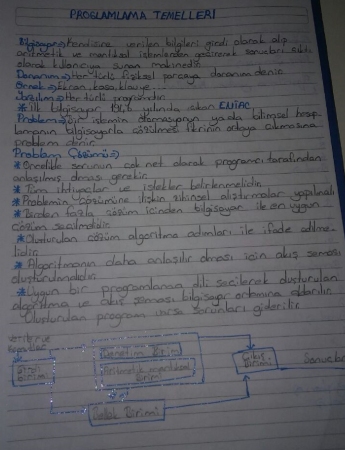 PROGLAMLAMA TEMELLERİ
Bilgisayar⇒Kendisine verilen bilgileri girdi olarak alıp
aritmetik ve mantıksal işlemlerden geçirerek sonuçları çıktı
olarak kullanıcıya sunan makinedir.
Donanım⇒Her türlü fiziksel parçaya donanım denir.
Örnek⇒Ekran, kasa, klavye...
Yazılım⇒Her türlü programdır.
*İlk bilgisayar yılında çıkan ENIAC
Problem⇒Bir işlemin otomasyonun ya da bilimsel hesap-
lamanın bilgisayarla çözülmesi fikrinin ortaya çıkmasına
problem denir.
Problem Çözümü⇒
*Öncelikle sorunun çok net olarak programcı tarafından
anlaşılmış olması gerekir.
*Tüm ihtiyaçlar ve istekler belirlenmelidir.
*Problemin çözümüne ilişkin zihinsel alıştırmalar yapılmalı
*Birden fazla çözüm içinden bilgisayar ile en uygun
çözüm seçilmelidir.
*Oluşturulan çözüm algoritma adımları ile ifade edilme-
lidir.
*Algoritmanın daha anlaşılır olması için akış şeması
oluşturulmalıdır.
*Uygun bir programlama dili seçilerek oluşturulan
algoritma ve akış şeması bilgisayar ortamına aktarılır.
Oluşturulan program varsa sorunları giderilir.
Veriler ve
Komutlar
Denetim Birimi
Giriş
Birimi
Aritmetik mantıksal
Birimi
Çıkış
Birimi
Sonuçlar
Bellek Birimi